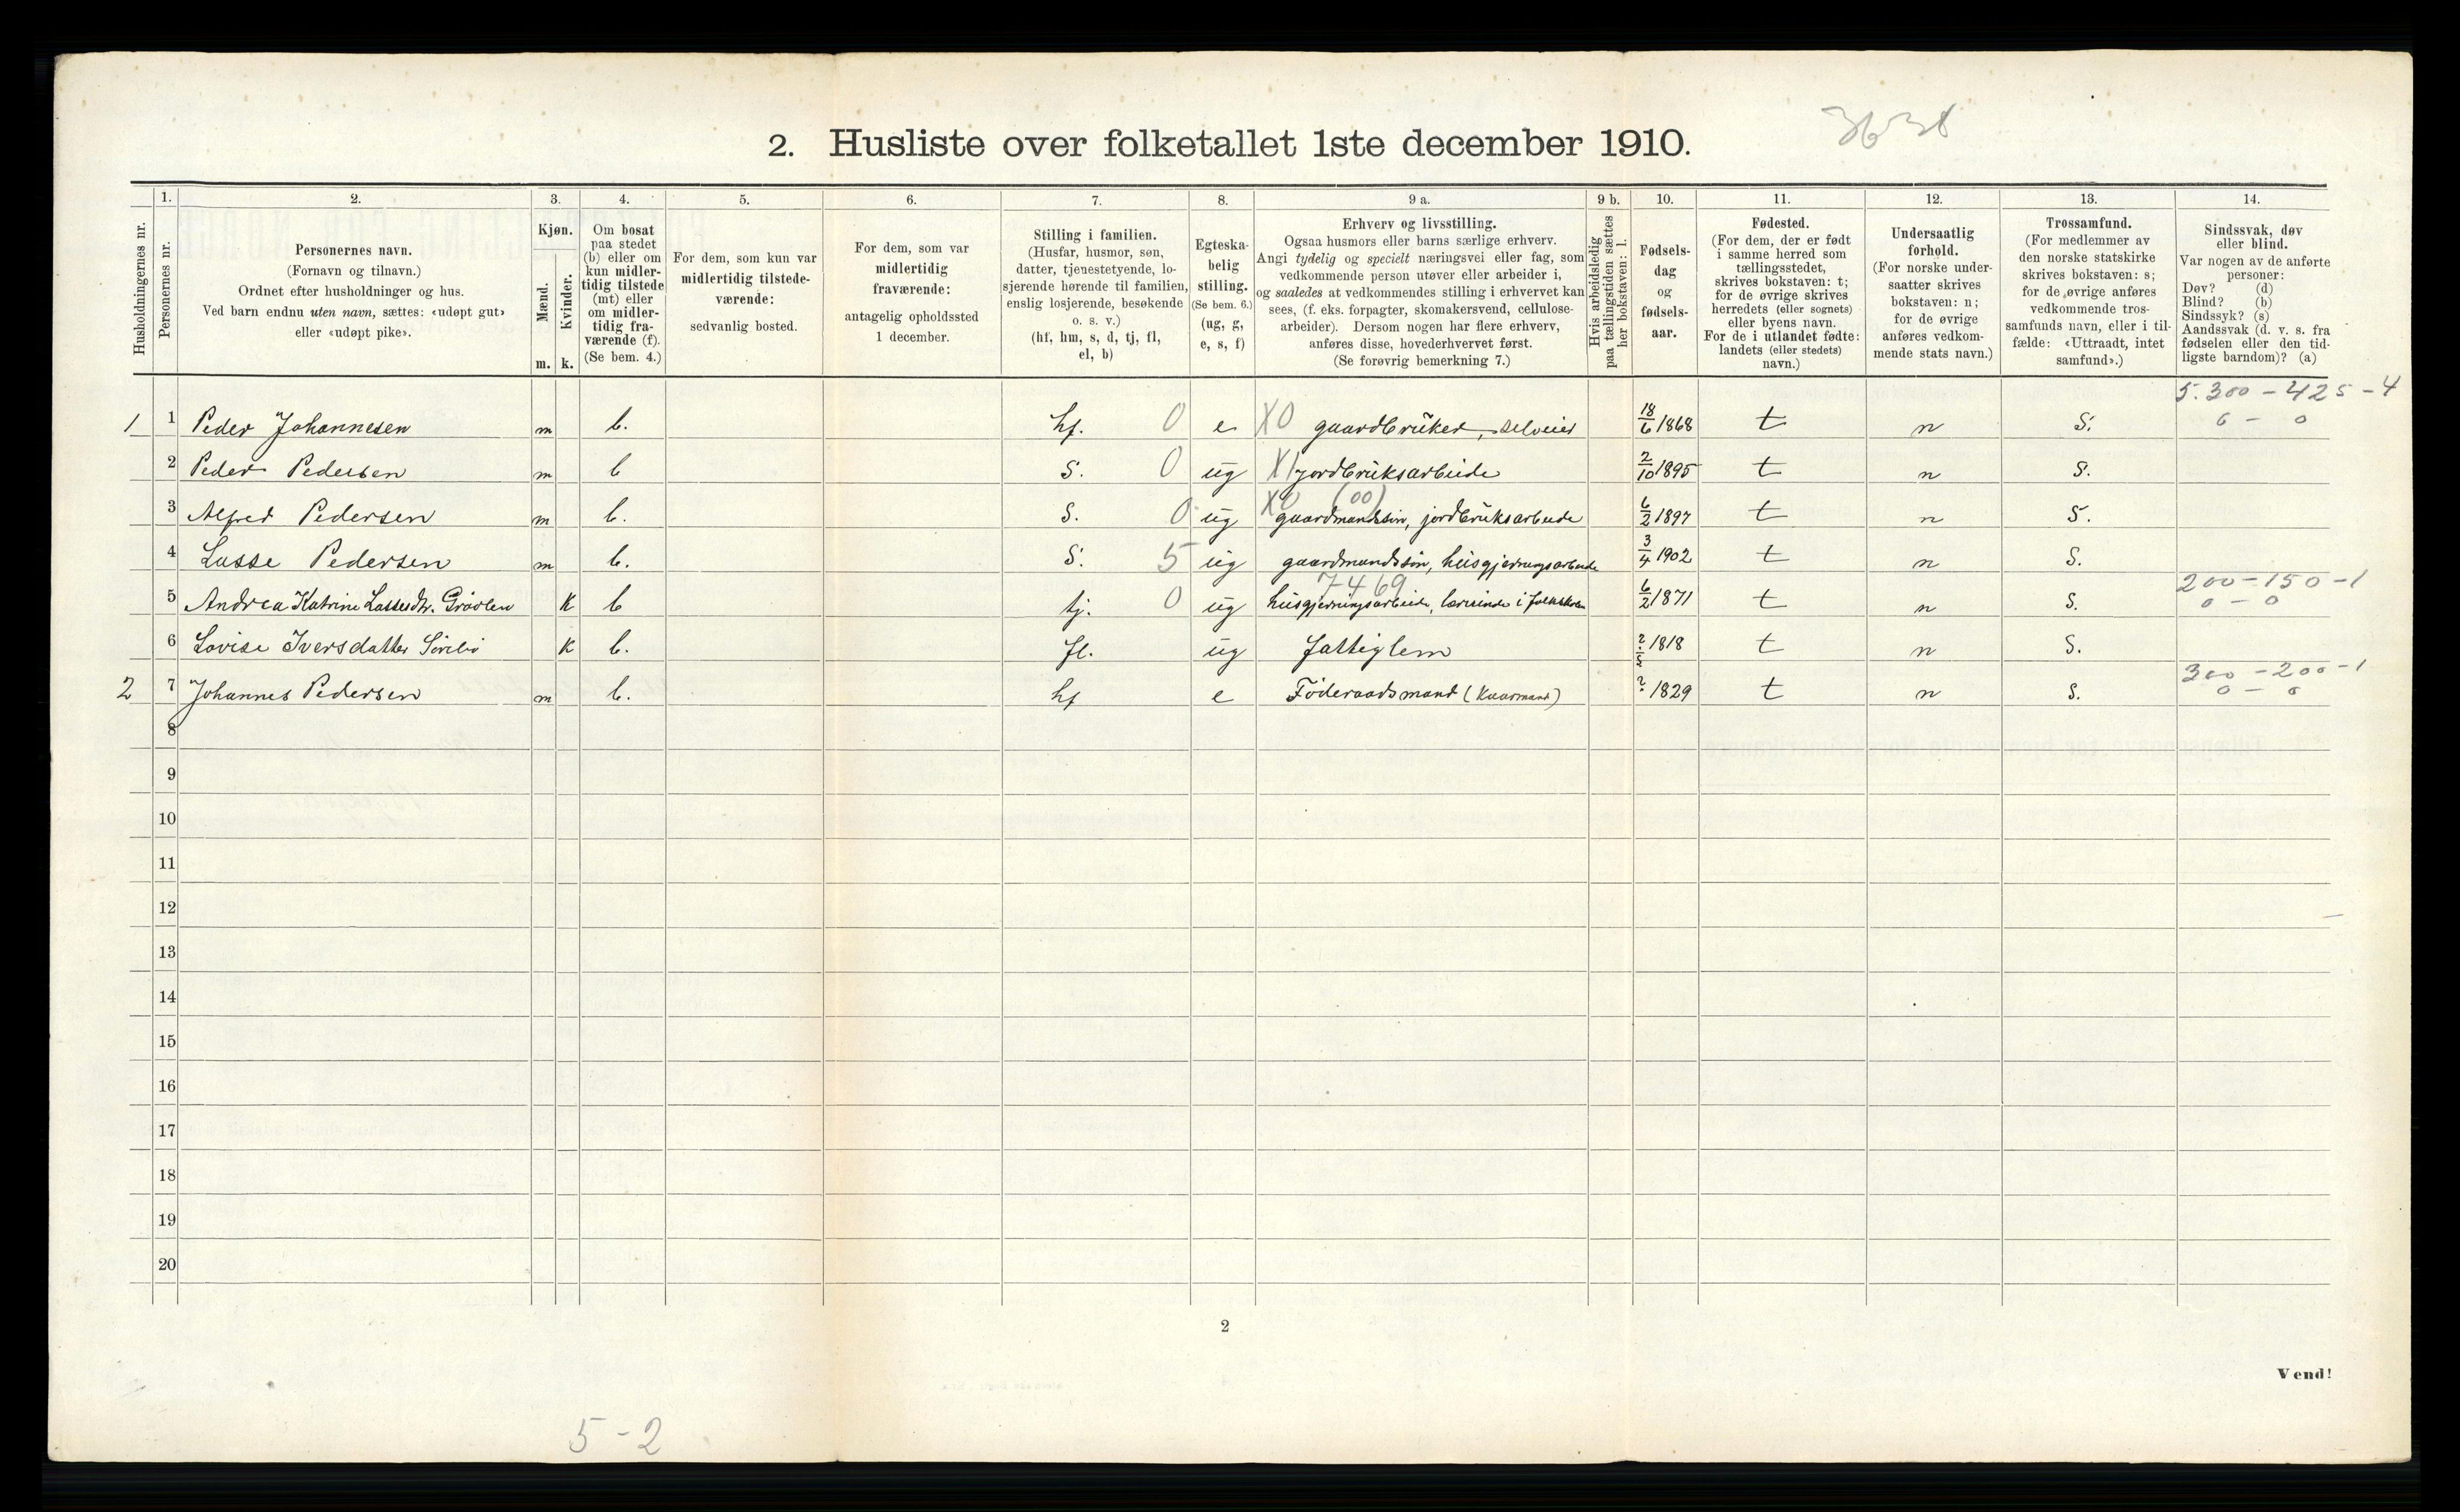 3638
2. Husliste over folketallet 1ste december 1910.
Husholdningernes nr.
1. Personernes nr.
2. Personernes navn.
(Fornavn og tilnavn.)
Ordnet efter husholdninger og hus.
Ved barn endnu uten navn, sættes: «udøpt gut»
eller «udøpt pike».
3. Kjøn.
Mænd. m.
Kvinder. k.
4. Om bosat
paa stedet
(b) eller om
kun midler-
tidig tilstede
(mt) eller
om midler-
tidig fra-
værende (f).
(Se bem. 4.)
5. For dem, som kun var
midlertidig tilstede-
værende:
sedvanlig bosted.
6. For dem, som var
midlertidig
fraværende:
antagelig opholdssted
1 december.
7. Stilling i familien.
(Husfar, husmor, søn,
datter, tjenestetyende, lo-
sjerende hørende til familien,
enslig losjerende, besøkende
o. s. v.)
(hf, hm, s, d, tj, fl,
el, b)
8. Egteska-
belig
stilling.
(Se bem. 6.)
(ug, g,
e, s, f)
9 a. Erhverv og livsstilling.
Ogsaa husmors eller barns særlige erhverv.
Angi tydelig og specielt næringsvei eller fag, som
vedkommende person utøver eller arbeider i,
og saaledes at vedkommendes stilling i erhvervet kan
sees, (f. eks. forpagter, skomakersvend, cellulose-
arbeider). Dersom nogen har flere erhverv,
anføres disse, hovederhvervet først.
(Se forøvrig bemerkning 7.)
9 b. Hvis arbeidsledig
paa tællingstiden sættes
her bokstaven: l.
10. Fødsels-
dag
og
fødsels-
aar.
11. Fødested.
(For dem, der er født
i samme herred som
tællingsstedet,
skrives bokstaven: t;
for de øvrige skrives
herredets (eller sognets)
eller byens navn.
For de i utlandet fødte:
landets (eller stedets)
navn.)
12. Undersaatlig
forhold.
(For norske under-
saatter skrives
bokstaven: n;
for de øvrige
anføres vedkom-
mende stats navn.)
13. Trossamfund.
(For medlemmer av
den norske statskirke
skrives bokstaven: s;
for de øvrige anføres
vedkommende tros-
samfunds navn, eller i til-
fælde: «Uttraadt, intet
samfund».)
14. Sindssvak, døv
eller blind.
Var nogen av de anførte
personer:
Døv? (d)
Blind? (b)
Sindssyk? (s)
Aandssvak (d. v. s. fra
fødselen eller den tid-
ligste barndom)? (a)
5.300 - 425 - 4
1 1 Peder Johannesen m b. hf. 0 e X0 gaardbruker, selveier 18/6 1868 t n S. 0 - 0
2 Peder Pedersen m b S. 0 ug X1 jordbruksarbeide 2/10 1895 t n S.
X0 (00)
3 Alfred Pedersen m b. S. 0 ug gaardmandssøn, jordbruksarbeide 6/2 1897 t n S.
4 Lasse Pedersen m b. S. 5 ug gaardmandssøn, husgjerningsarbeide 3/4 1902 t n S.
7469 200 - 150 - 1
5 Andrea Katrine Lassesdtr. Grøvlen k b tj. 0 ug husgjerningsarbeide, lærerinde i folkskolen 6/2 1871 t n S. 0 - 0
6 Lovise Iversdatter k b. fl. ug fattiglem ?/5 1818 t n S.
300 - 200 - 1
2 7 Johannes Pedersen m b. hf e Føderaadsmand (Kaarmand) ? 1829 t n S. 0 - 0
8
9
10
11
12
13
14
15
16
17
18
19
20
2
Vend!
5 - 2